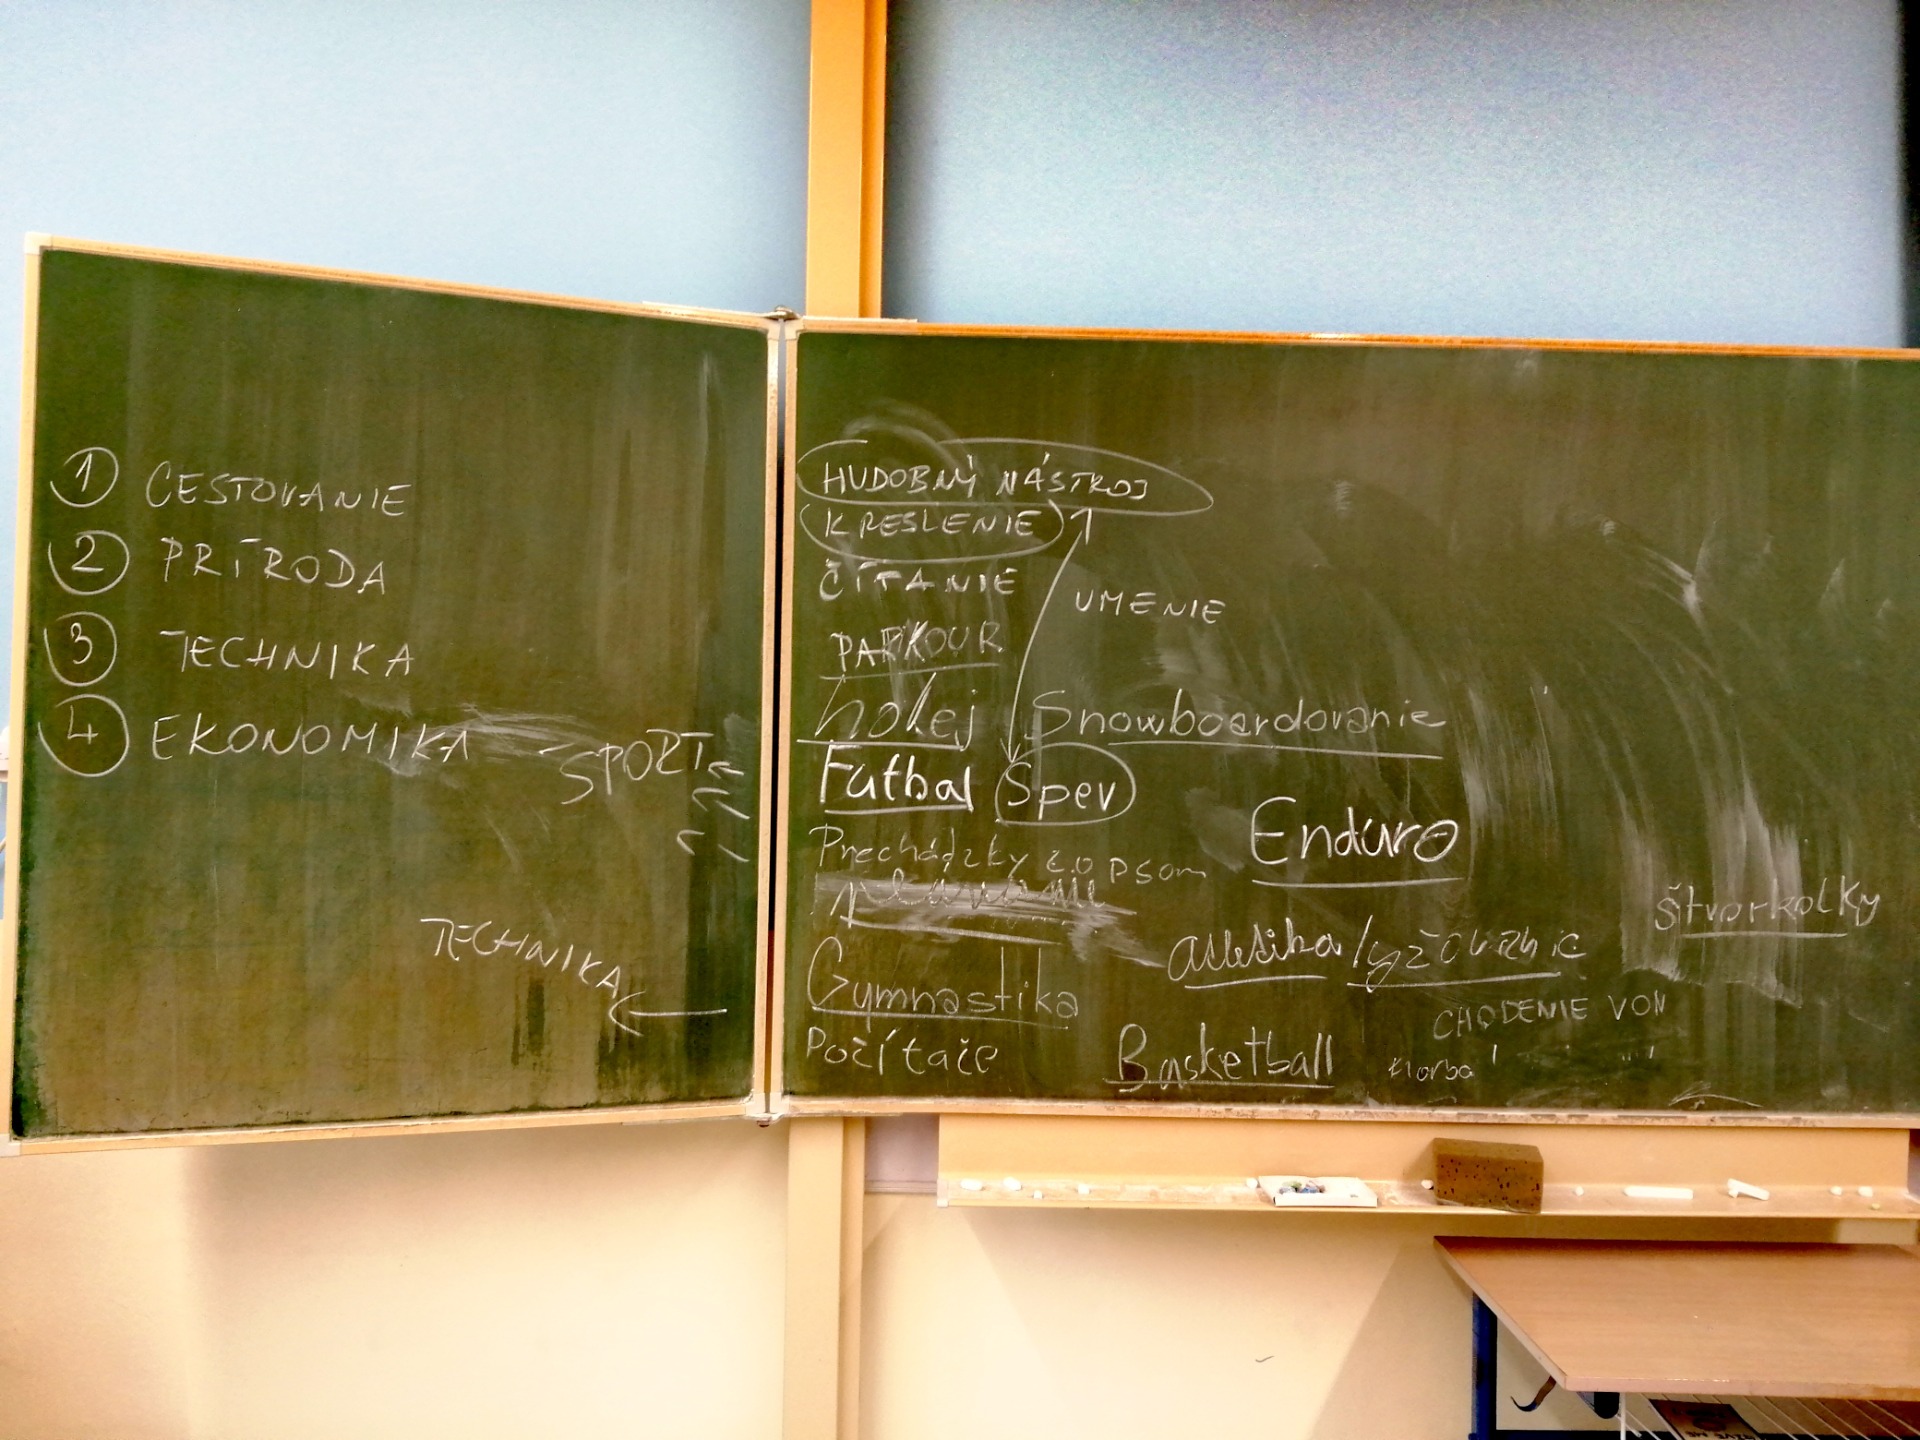 1 CESTOVANIE
2 PRÍRODA
3 TECHNIKA
4 EKONOMIKA
SPORT
TECHNIKA
HUDOBNÝ NÁSTROJ
KRESLENIE
ČÍTANIE
UMENIE
PARKOUR
hokej Snowboardovanie
Futbal Spev
Prechádzky zo psom
Enduro
plávanie
štvorkolky
atletika lyžovanie
Gymnastika
CHODENIE VON
Počítače Basketball florbal